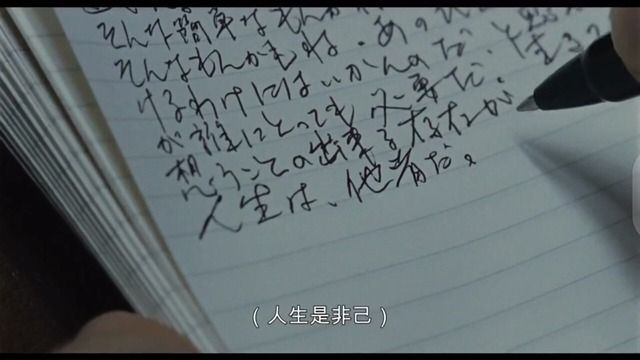 そんな簡単なもんか
そんなもんかもね。あの
けるわけにはいかんのだ、と思
が誰にとっても必要だ。生きる
想うことの出来る存在が
人生は、他者だ。
（人生是非己）